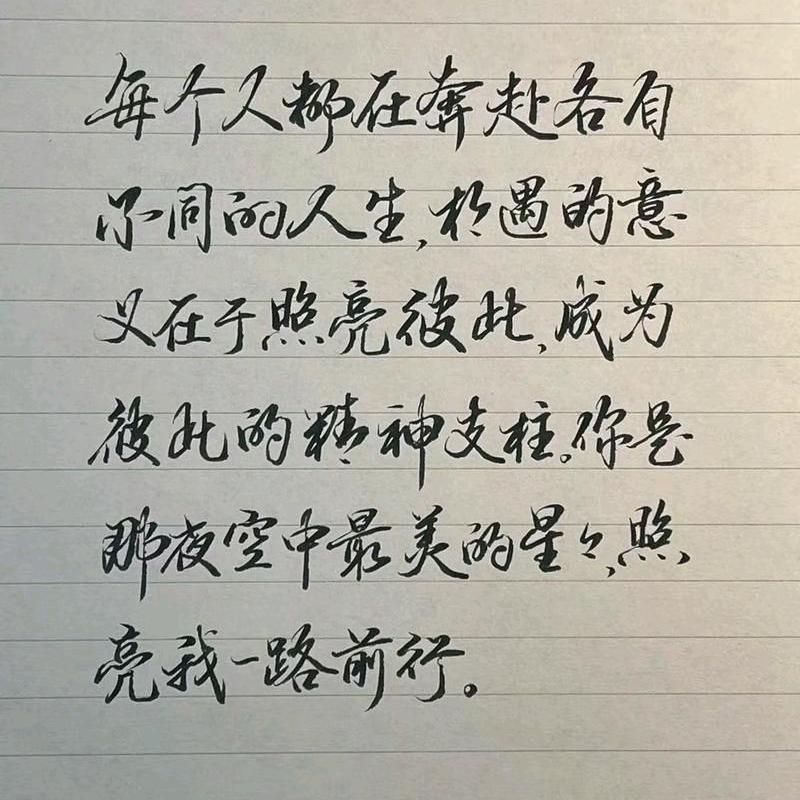 每个人都在奔赴各自
不同的人生,相遇的意
义在于照亮彼此,成为
彼此的精神支柱。你是
那夜空中最美的星々,照
亮我一路前行。